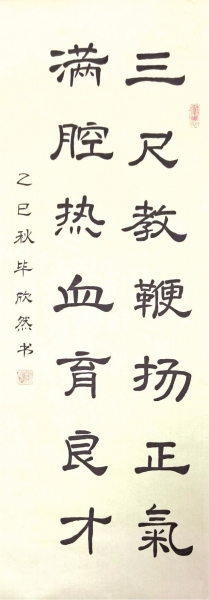 三尺教鞭扬正氣
满腔热血育良才
乙巳秋毕欣然书